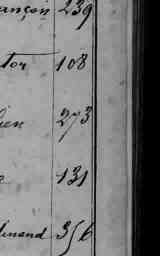 ançon 239
tor 108
ien 273
131
dinand 356